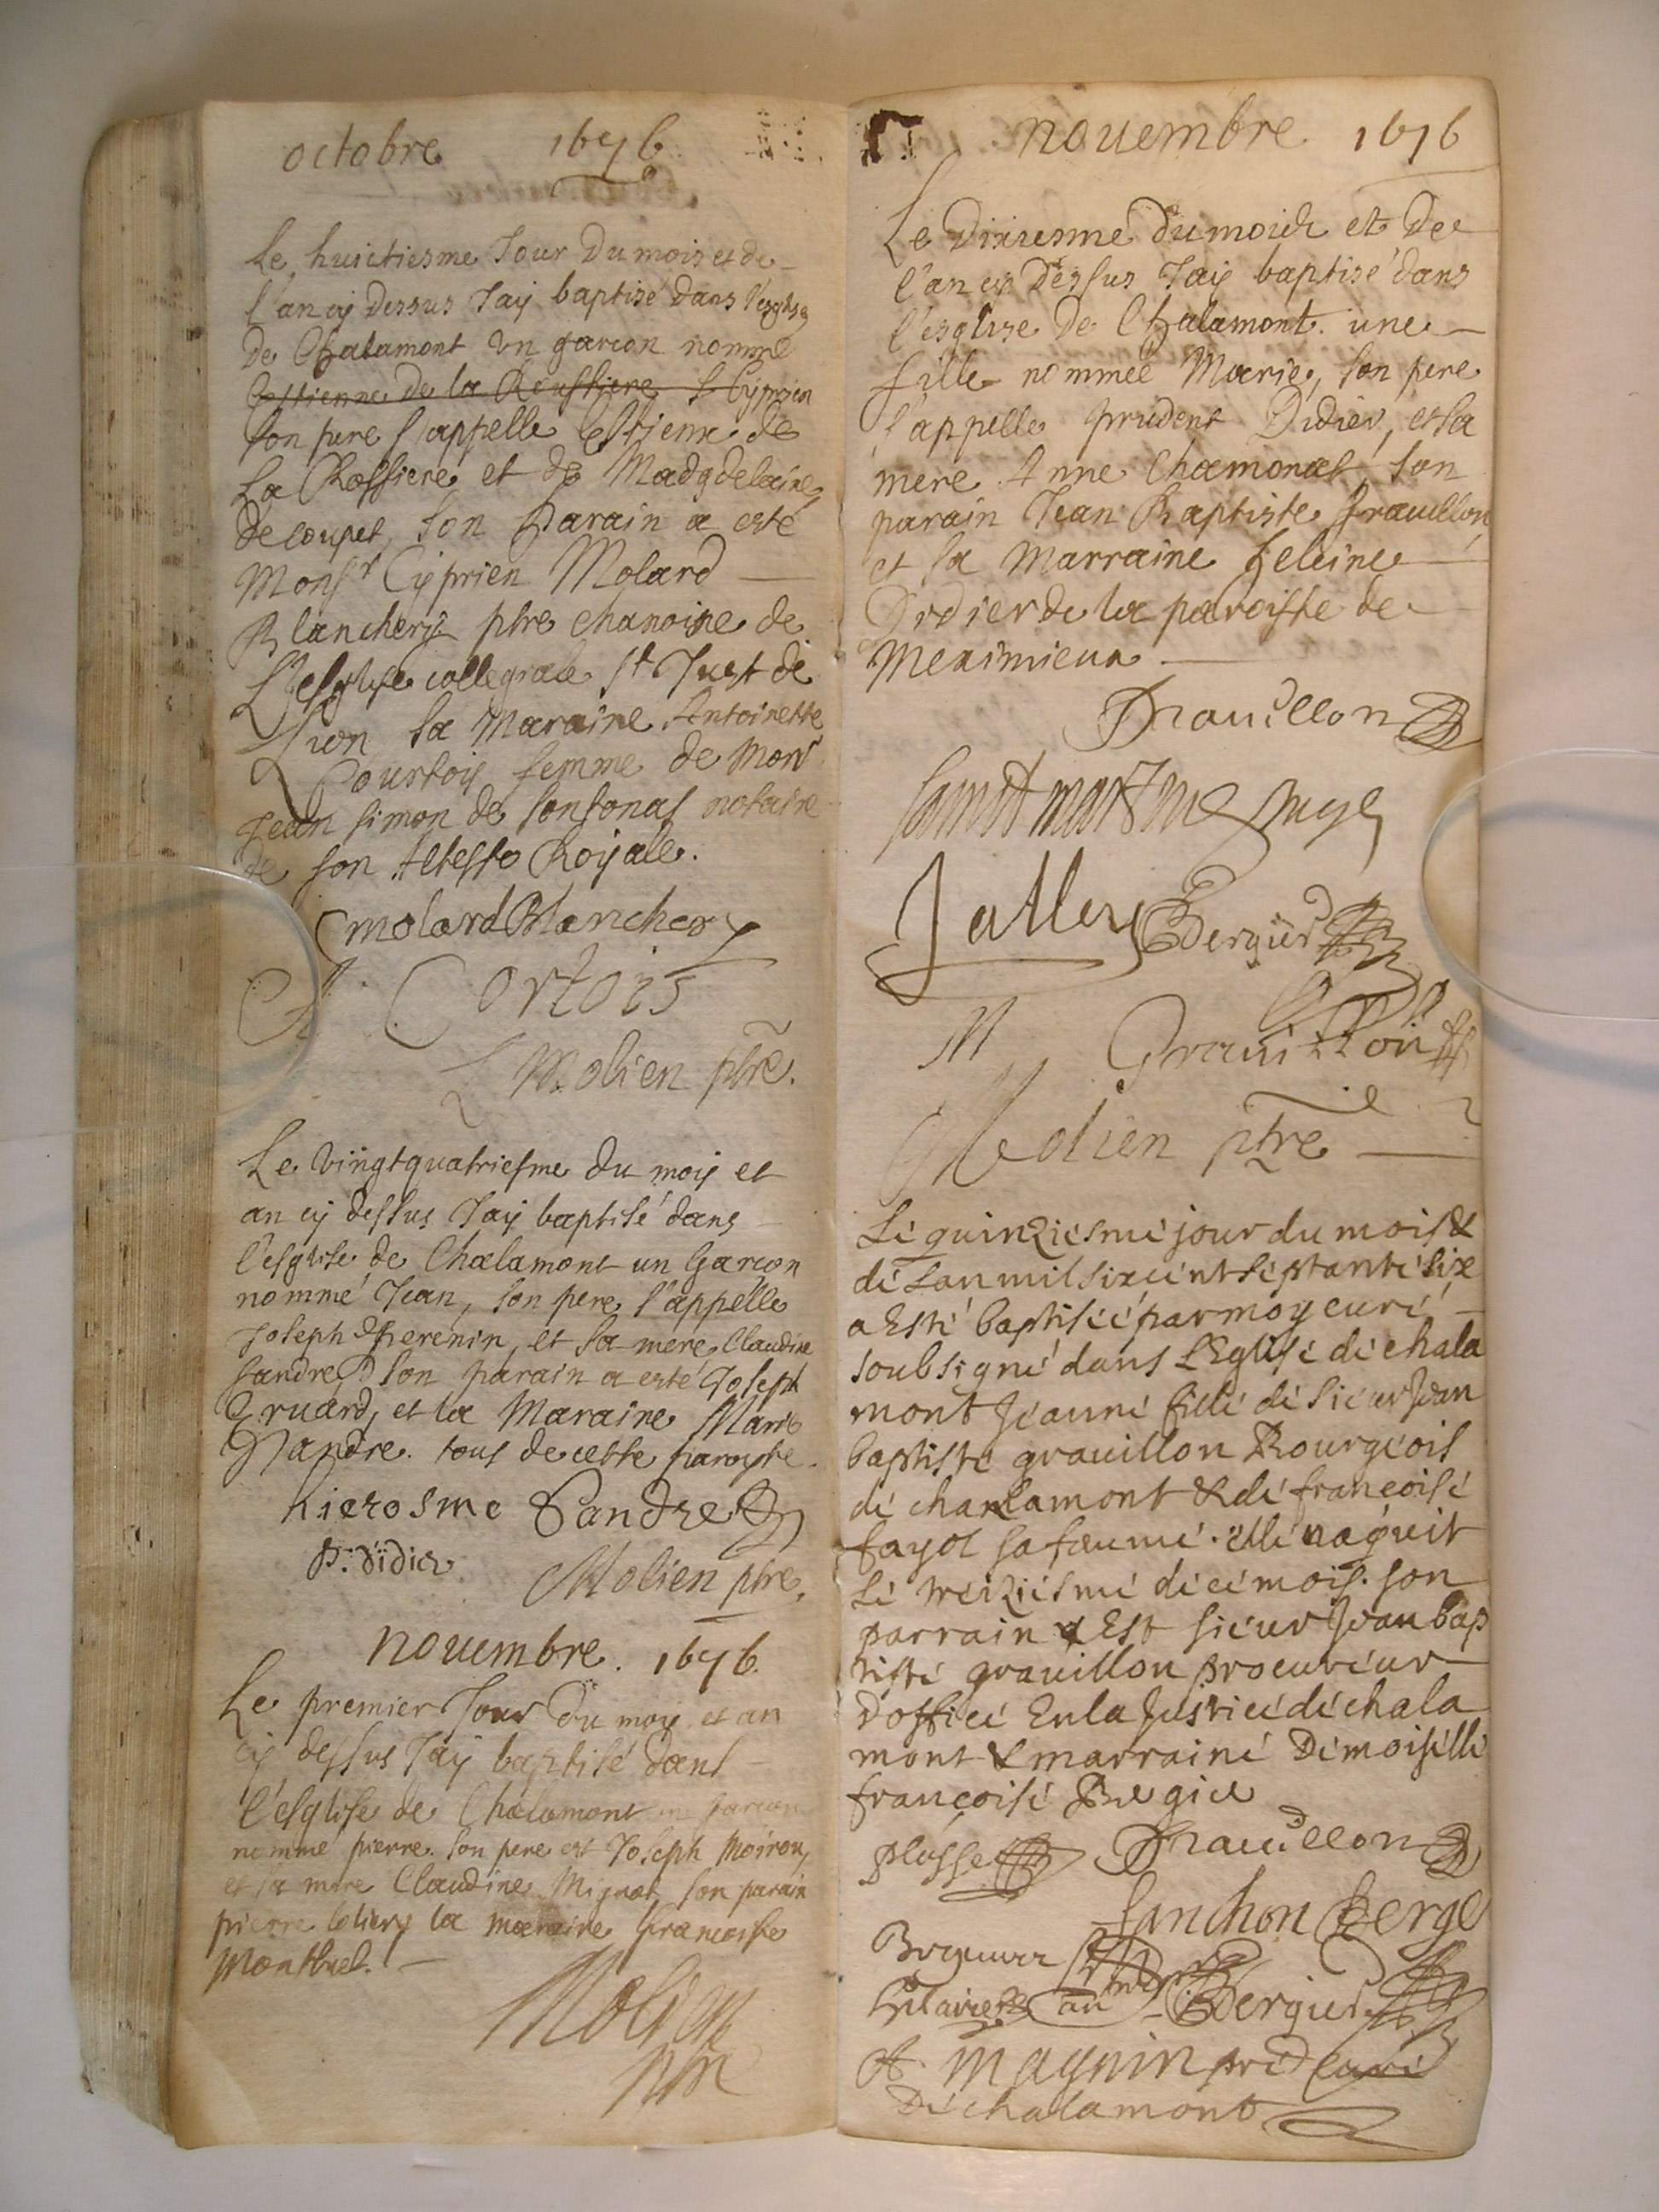 octobre 1676
Le huictiesme Jour Du mois et de
l'an cy dessus Jay baptisé dans l'esglise
De Chalamont un garcon nommé
Estienne de la Roussiere Cyprien
son pere s'appelle Estienne de
La Rossiere et de Madgdelaine
de coupet, son Parain a esté
Monsr Cyprien Molard
Blanchery ptre chanoine de
L'esglise collegiale St Just de
Lion sa Maraine Antoinette
Courtois femme de Monr
Jean Simon de Sonsonas notaire
de son Altesse Royale.
C molard Blanchery
A. Cortois
Molien ptre.
Le vingtquatriesme du mois et
an cy dessus Jay baptisé dans
l'esglise de Chalamont un Garcon
nommé Jean, son pere s'appelle
Joseph Therenin, et sa mere Claudine
Pandre, son parain a esté Joseph
Gruard, et la Maraine Marie
Pandre. tous de cette paroysse.
hierosme Pandre
P. didier
Molien ptre.
nouembre. 1676.
Le premier Jour Du moys et an
cy dessus Jay baptisé dans
l'esglise de Chalamont un garcon
nomme pierre. son pere est Joseph Moirou,
et sa mere Claudine Mignat, son parain
pierre la maraine francoise
Monthuel.
Molien
ptre
nouembre 1676
Le Dixiesme Du mois et De
l'an cy Dessus Jay baptisé dans
l'esglise De Chalamont. une
fille nommée Marie, son pere
s'appelle prudent Didier, et sa
mere Anne Chamonat, son
parain Jean Baptiste Grauillon,
et sa Marraine heleine
Didier de la paroisse de
Meximieux
Grauillon
saint martin juge
Jallery Bergier
M Grauillon
Molien ptre
Le quinziesme jour du mois &
de Lan mil sixcent septante six
a Esté baptisée par moy curé
soubsigné dans LEglise de chala
mont Jeanne fille de sieur Jean
baptiste grauillon Bourgeois
de chalamont & de francoise
fayol sa femme. elle naquit
le treiziesme de ce mois. son
parrain Est sieur Jean bap
tiste grauillon procureur
Doffice En la Justice de chala
mont & marraine Demoiselle
francoise Bergier
plasse Grauillon
fanchon berge
Bergier
A. Magnin pre Curé
De chalamont